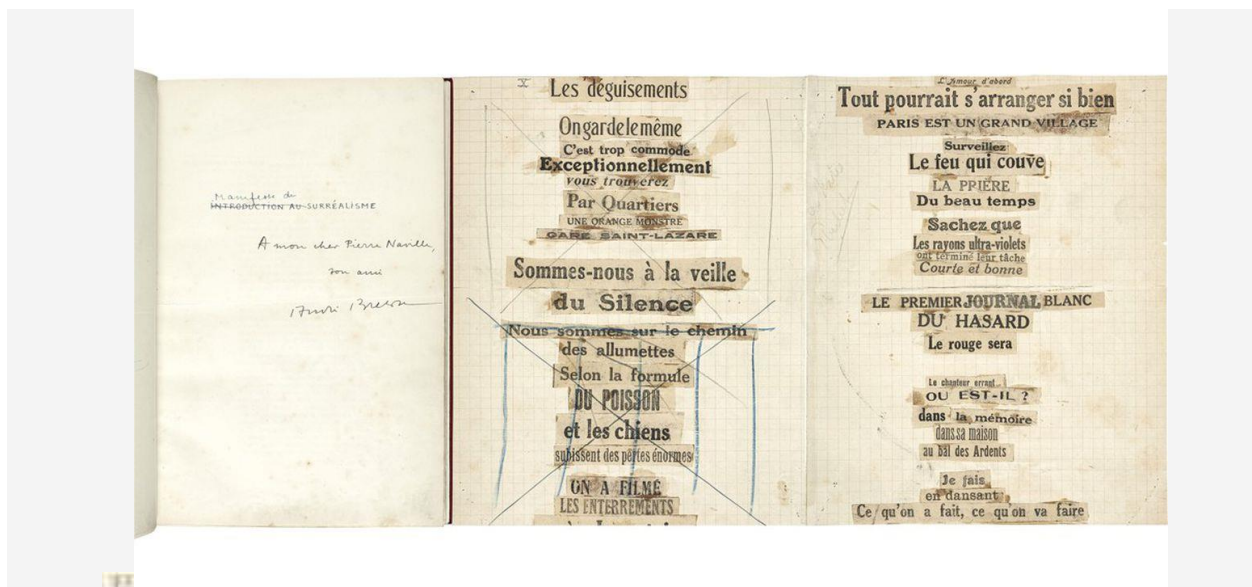 Manifeste du
INTRODUCTION AU SURRÉALISME
A mon cher Pierre Naville,
son ami
André Breton
X
Les déguisements
On garde le même
C'est trop commode
Exceptionnellement
vous trouverez
Par Quartiers
UNE ORANGE MONSTRE
GARE SAINT-LAZARE
Sommes-nous à la veille
du Silence
Nous sommes sur le chemin
des allumettes
Selon la formule
DU POISSON
et les chiens
subissent des pertes énormes
ON A FILMÉ
LES ENTERREMENTS
L'Amour d'abord
Tout pourrait s'arranger si bien
PARIS EST UN GRAND VILLAGE
Surveillez
Le feu qui couve
LA PRIÈRE
Du beau temps
Sachez que
Les rayons ultra-violets
ont terminé leur tâche
Courte et bonne
LE PREMIER JOURNAL BLANC
DU HASARD
Le rouge sera
Le chanteur errant
OU EST-IL ?
dans la mémoire
dans sa maison
au bal des Ardents
Je fais
en dansant
Ce qu'on a fait, ce qu'on va faire